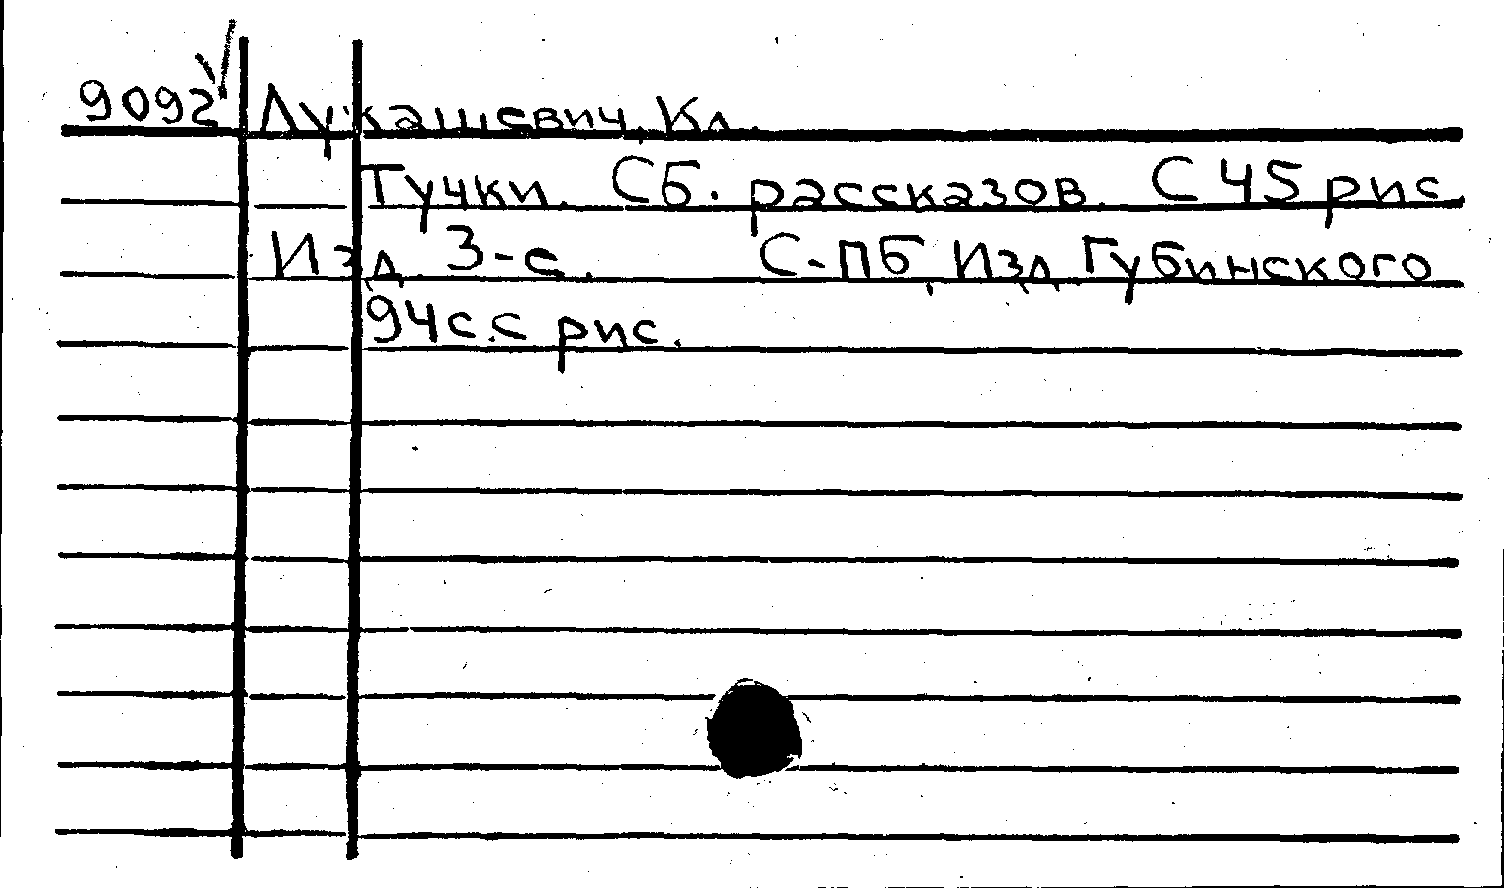 9092 Лукашевич, Кл.
Тучки. Сб. рассказов. С 45 рис.
Изд. 3-е. С-ПБ, Изд. Губинского
94 с. с рис.